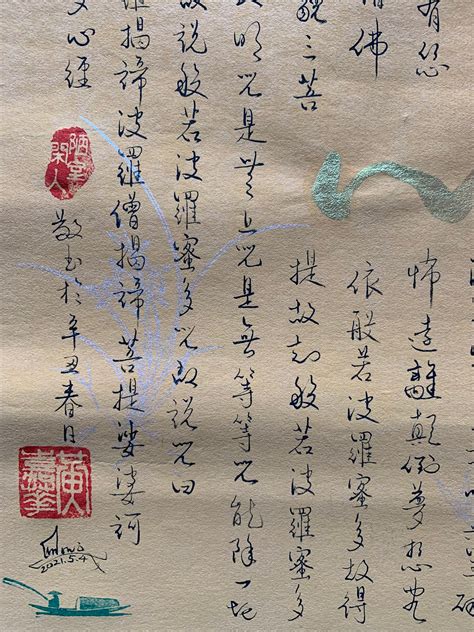 有恐
怖遠離顛倒夢想究
佛
依般若波羅蜜多故得
藐三菩
提故知般若波羅蜜多
明咒是無上咒是無等等咒能除一切
故說般若波羅蜜多咒即說咒曰
揭諦波羅僧揭諦菩提娑婆訶
心經
陋室閑人
敬書於辛丑春日
黃
2021.5.4